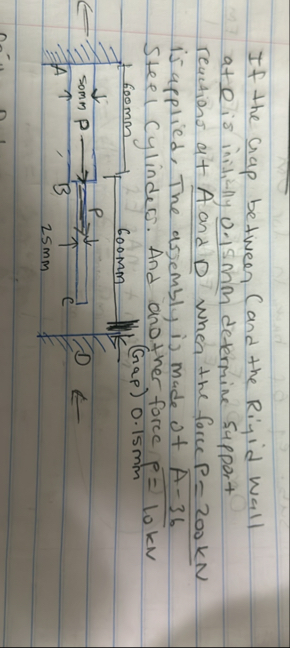 If the Gap between C and the Rigid wall
at D is initially 0.15mm determine support
reactions at A and D when the force P = 200kN
is applied. The assembly is made of A-36
Steel Cylinders. And another force P = 10kN
600mm
600mm
(Gap) 0.15mm
P
P
A
B
C
D
50mm
25mm